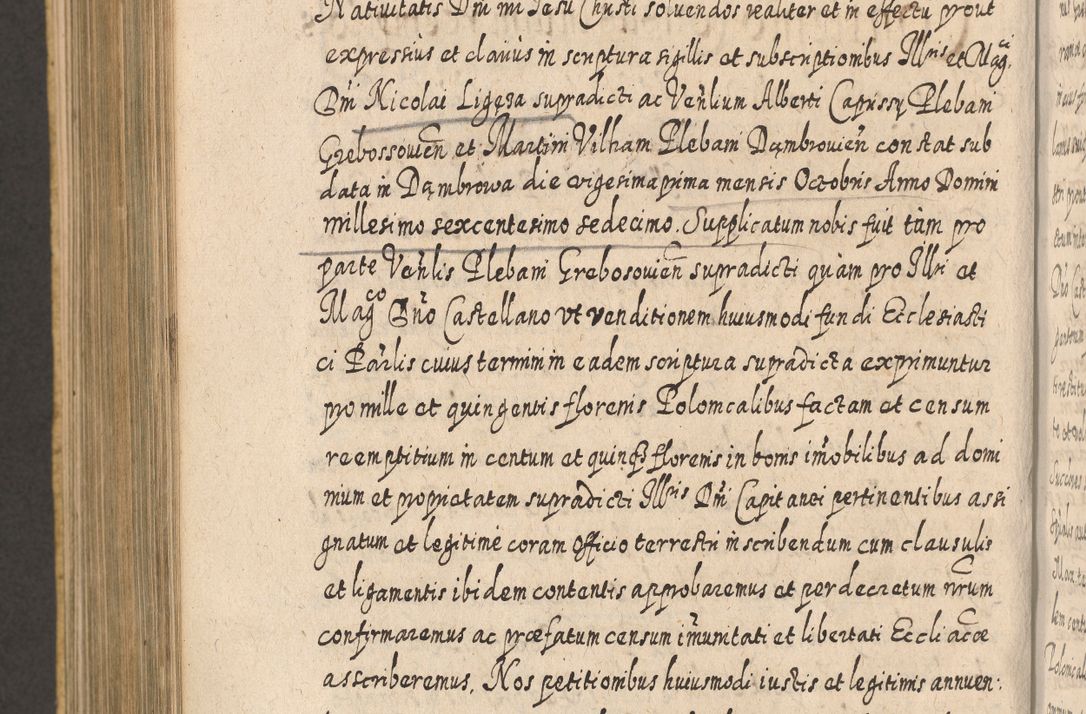 Nativitatis Dni nri Jesu Christi solvendos realiter et in effectu prout
expressius et clarius in scriptura sigillis et subscriptionibus Illris et Magci.
Dni Nicolai Ligęza supradicti ac Venlium Alberti Capussy Plebani
Grebossovien et Martini Vilham Plebani Dąmbrovien constat sub
data in Dąmbrowa die vigesima prima mensis Octobris Anno Domini
millesimo sexcentesimo sedecimo. Supplicatum nobis fuit tàm pro
parte Venlis Plebani Grebosovien supradicti quàm pro Illri et
Magco Dno Castellano vt venditionem huiusmodi fundi Ecclesiasti
ci Parlis cuius termini in eadem scriptura supradicta exprimuntur
pro mille et quingentis florenis Polonicalibus factam et censum
reemptitium in centum et quinqz florenis in bonis imobilibus ad domi
nium et proprietatem supradicti Illris Dni Capitanei pertinentibus assi
gnatum et legitimè coram officio terrestri inscribendum cum clausulis
et ligamentis ibidem contentis approbaremus et per decretum nrum
confirmaremus ac præfatum censum imunitati et libertati Eccliacæ
asscriberemus. Nos petitionibus huiusmodi iustis et legitimis annuen: